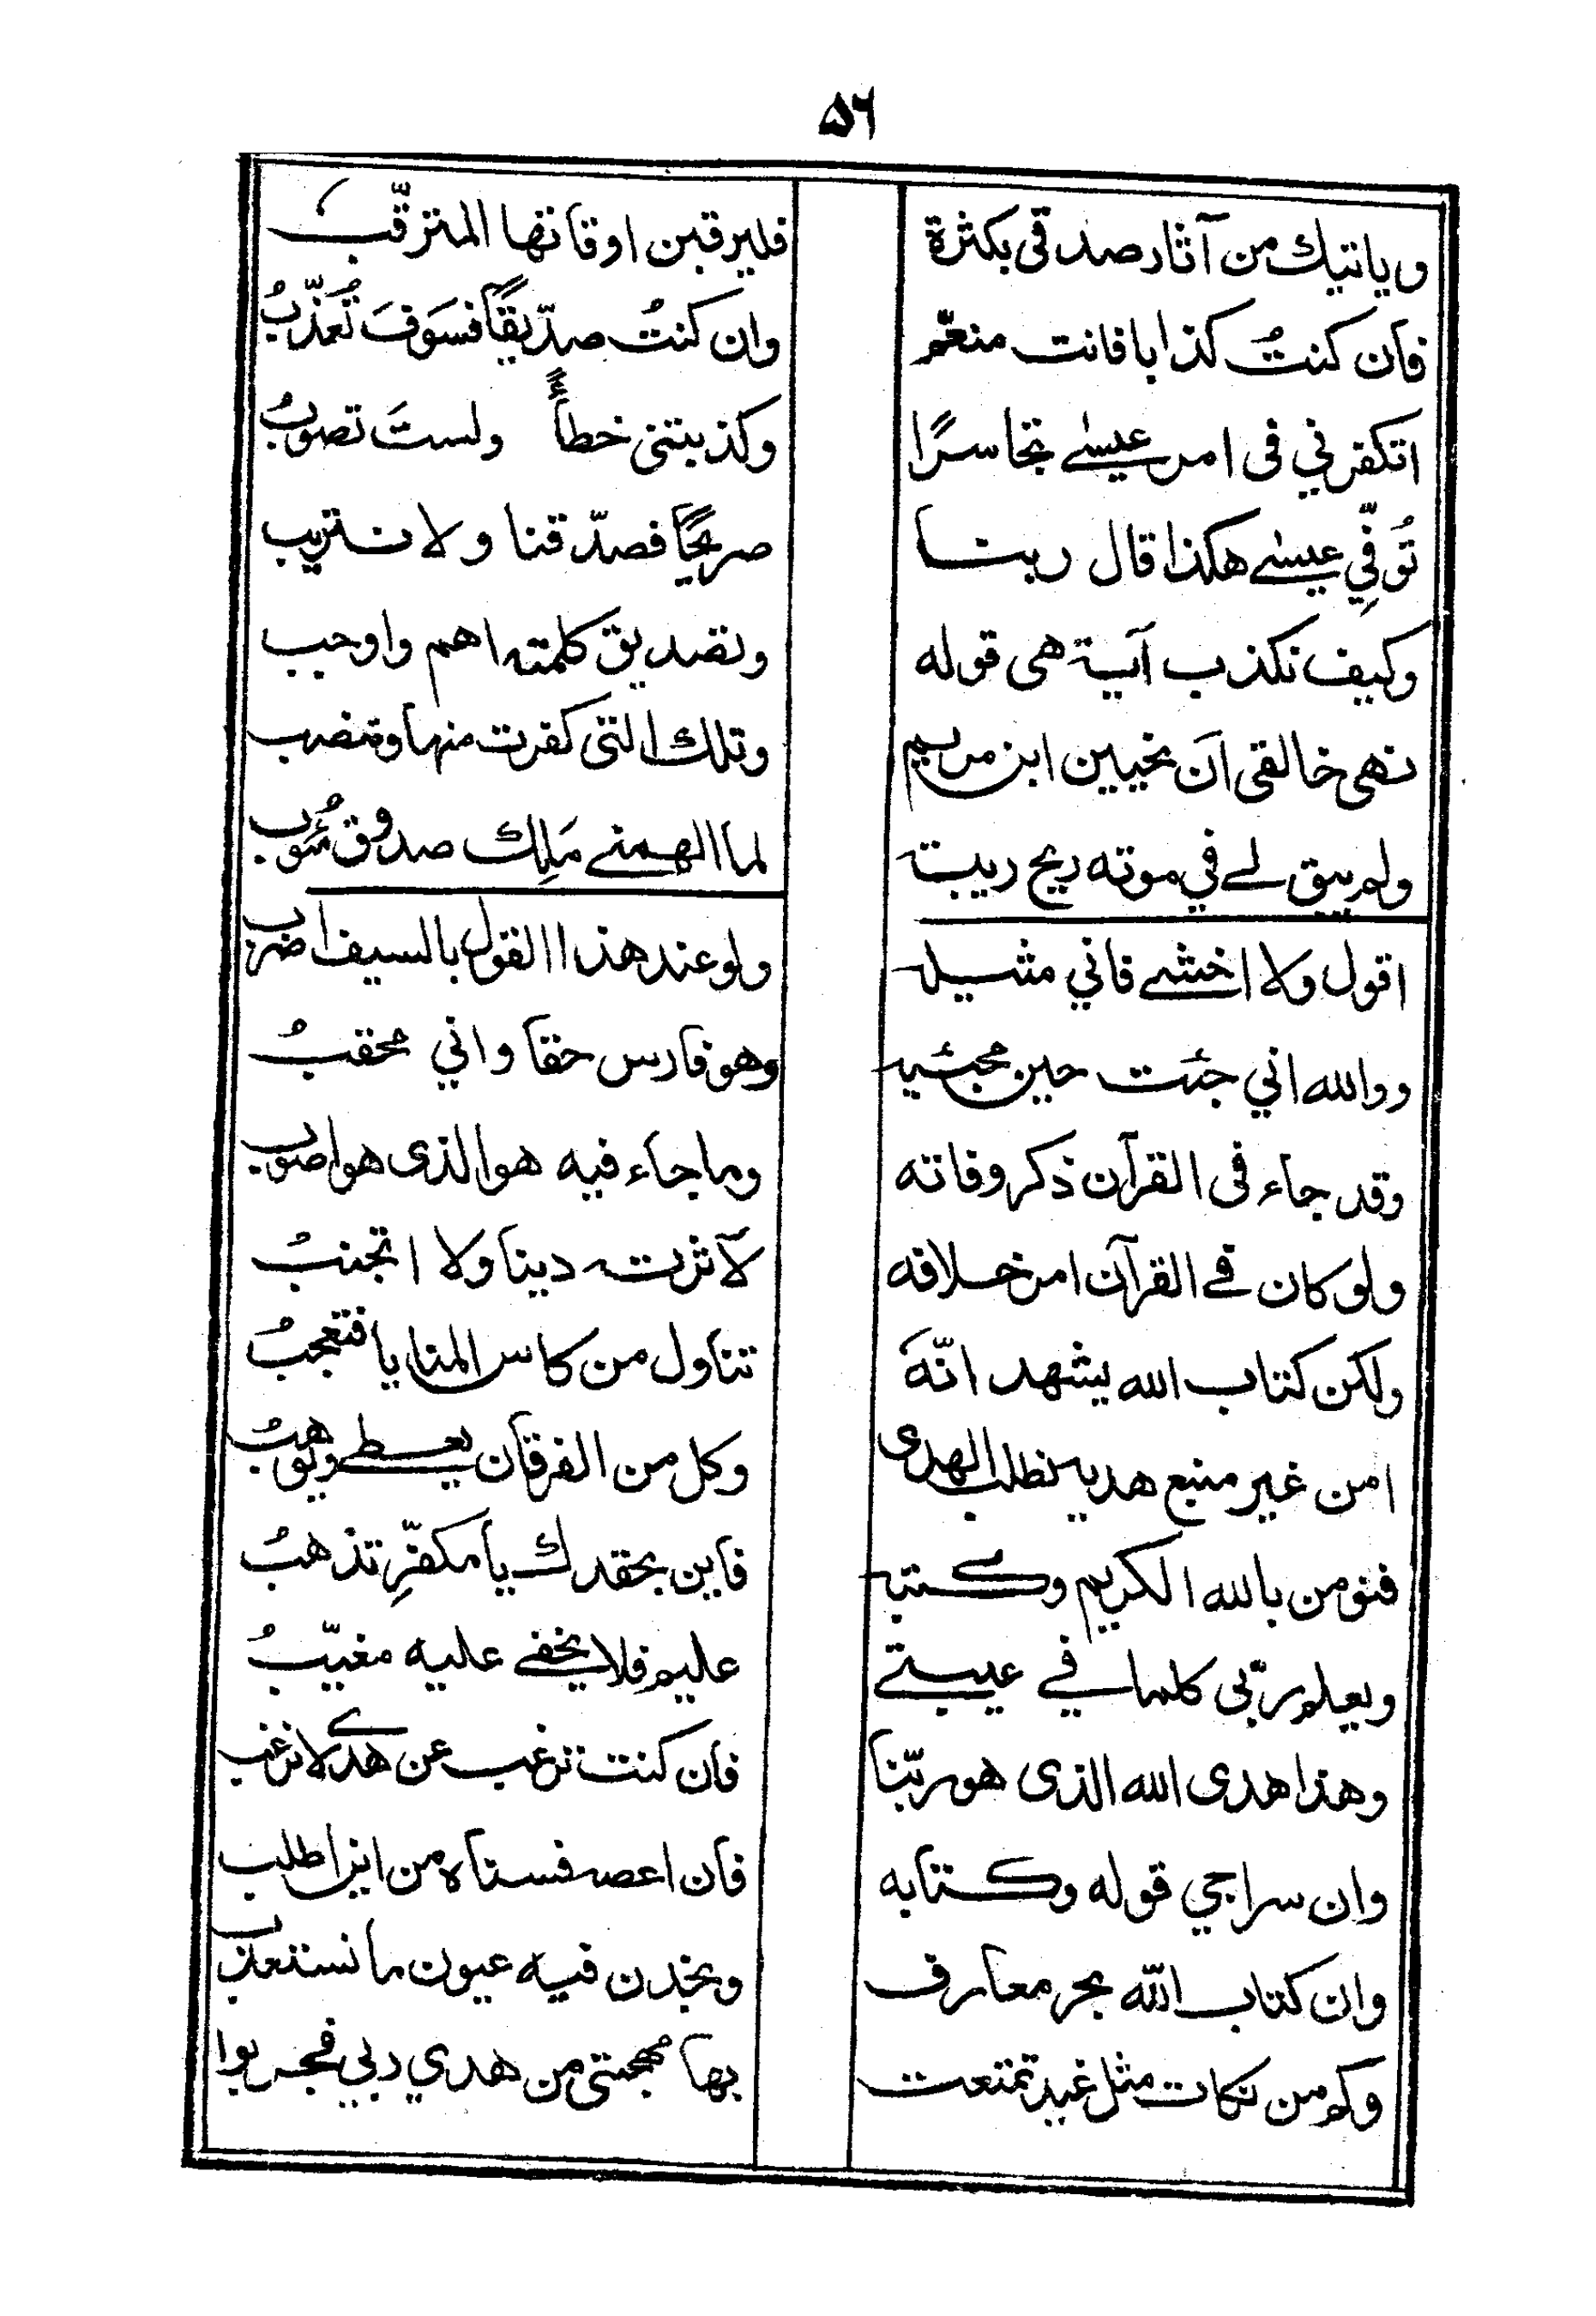 ۵۶
ويأتيك من آثار صدقى بكثرة فليرقبن اوقاتها المترقّب
فان كنتُ كذابا فانت منعّم وان كنتُ صدّيقًا فسوفَ تُعذّبُ
اتكفرني فى امر عيسىٰ تجاسرًا وكذبتنى خطأً ولستَ تصوبُ
تُوفِّي عيسىٰ هكذا قال ربنا صريحًا فصدّقنا ولا نستريب
وكيف نكذب آية هى قوله وتصديق كلمته اهم واوجب
نهى خالقى ان نحيين ابن مريم وتلك التى كفرت منها وتغضب
ولم يبق لے في موته ريح ريبة لما الهمنے مَلِك صدوق مُئوبُ
اقول ولا اخشے فاني مثيله ولو عند هذا القول بالسيف اضرب
ووالله اني جئت حين مجئيه وهو فارس حقا واني محقبُ
وقد جاء فى القرآن ذكر وفاته وما جاء فيه هو الذى هو اصوب
ولو كان فے القرآن امر خلافه لآثرته دينا ولا اتجنبُ
ولكن كتاب الله يشهد انّه تناول من كاس المنايا فتعجبُ
امن غير منبع هديه نطلب الهدى وكل من الفرقان يعطے ويوهبُ
فنومن بالله الكريم وكتبه فاين بحقدك يا مكفّرِ تذهبُ
ويعلم ربّى كلما في عيبتے عليم فلا يخفے عليه مغيّبُ
وهذا هدى الله الذى هو ربّنا فان كنت ترغب عن هدى لا نرغب
وان سراجي قوله وكتابه فان اعصه فسناه من اين اطلب
وان كتاب اللّه بحر معارف ونجدن فيه عيون ما نستعذب
وكم من نكات مثل غيد تمتعت بها مهجتى من هدي ربي فجربوا